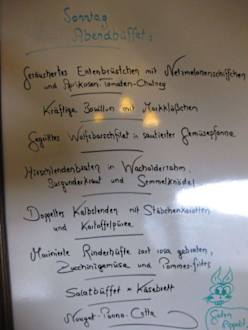 Sonntag
Abendbüffet:
Geräuchertes Entenbrüstchen mit Netzmelonenschiffchen
und Aprikosen-Tomaten-Chutney
Kräftige Bouillon mit Markklößchen
Gegrilltes Wolfsbarschfilet in sautierter Gemüsepfanne
Hirschlendenbraten in Wacholderrahm,
Burgunderkraut und Semmelknödel
Doppeltes Kalbslenden mit Stäbchenkarotten
und Kartoffelpüree
Marinierte Rinderhüfte zart rosa gebraten,
Zucchinigemüse und Pommes-frites
Salatbüffet * Käsebrett
Nougat-Panna-Cotta
Guten
Appetit